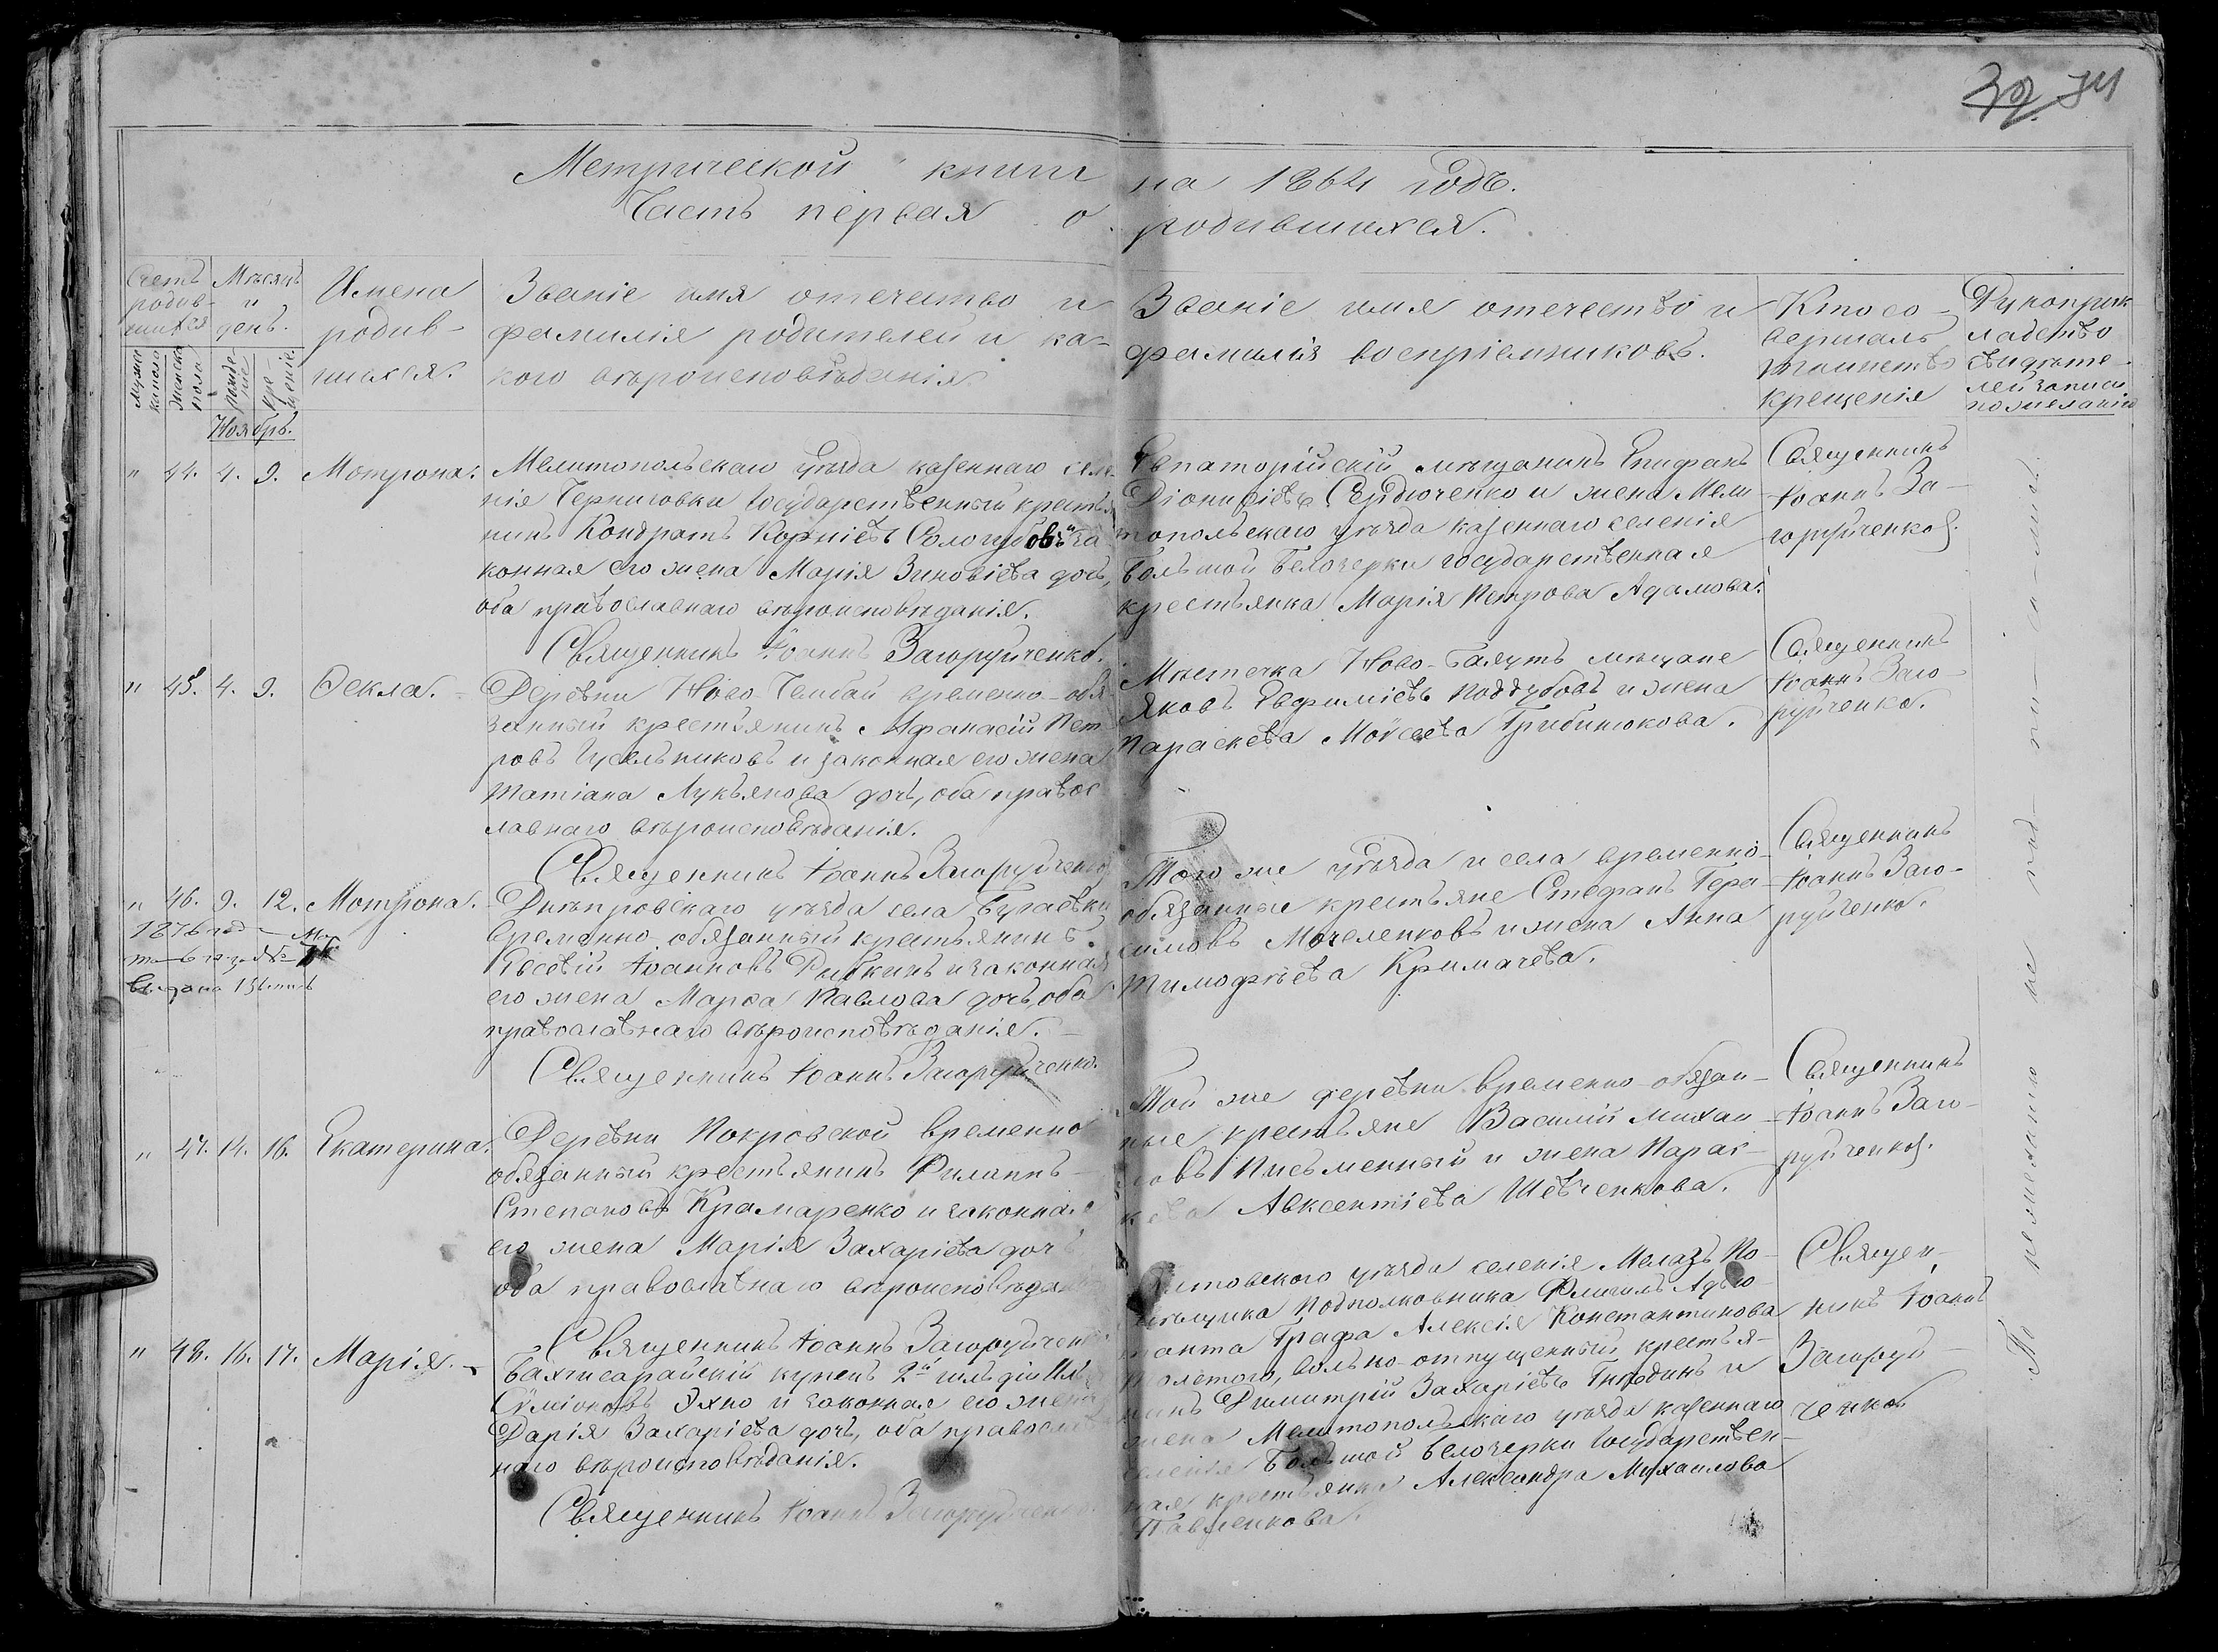 34
Метрической книги на 1864 годъ.
Часть первая о родившихся.
Счетъ родив-шихся
Мужескаго
Женска пола
Мѣсяцъ и день.
рожде-ніе
кре-щеніе.
Имена
родив-
шихся.
Званіе имя отечество и
фамилія родителей и ка-
кого вѣроисповѣданія
Званіе имя отечество и
фамилія воспріемниковъ.
Кто со-
вершалъ
таинство
крещенія
Рукоприк
ладство
свидѣте-
лей записи
по желанію
Ноябрь.
" 44. 4. 9. Мотрона.
Мелитопольскаго уѣзда казеннаго селе-
нія Черниговки Государственный крестья
нинъ Кондратъ Корніевъ Сологубовъ и за
конная его жена Марія Зиновіева дочь,
оба православнаго вѣроисповѣданія.
Священникъ Іоаннъ Загоруйченко.
Евпаторійскій мѣщанинъ Епифанъ
Діонисіевъ Сердюченко и жена Мели
топольскаго уѣзда казеннаго селенія
Большой Белозерки государственная
крестьянка Марія Петрова Адамова.
Священникъ
Іоаннъ За-
горуйченко.
" 45. 4. 9. Ѳекла.
Деревни Ново-Чембай временно-обя-
занный крестьянинъ Афанасій Пет
ровъ Гусельниковъ и законная его жена
Татіана Лукьянова дочь, оба правос
лавнаго вѣроисповѣданія.
Священникъ Іоаннъ Загоруйченко
Мѣстечка Ново- мѣщане
Яковъ Евфиміевъ Поддубовъ и жена
Параскева Моисеева Грибинюкова.
Священникъ
Іоаннъ Заго-
руйченко.
" 46. 9. 12. Мотрона.
1876 год
за №
выдана
Днѣпровскаго уѣзда села
временно обязанный крестьянинъ
Евсевій Іоанновъ Рибкинъ и законная
его жена Марѳа Павлова дочь, оба
православнаго вѣроисповѣданія.
Священникъ Іоаннъ Загоруйченко.
Того же уѣзда и села временно-
обязанные крестьяне Стефанъ Гера-
симовъ Мочеленковъ и жена Анна
Тимофѣева Кримачева.
Священникъ
Іоаннъ Заго-
руйченко.
" 47. 14. 16. Екатерина.
Деревни Покровской временно
обязанный крестьянинъ Филиппъ
Степановъ Крамаренко и законная
его жена Марія Захаріева дочь
оба православнаго вѣроисповѣданія
Священникъ Іоаннъ Загоруйченко
Той же деревни временно-обязан-
ные крестьяне Василій Михаи-
ловъ Письменный и жена Парас-
кева Авксентіева Шевченкова.
Священникъ
Іоаннъ Заго-
руйченко.
" 48. 16. 17. Марія.
Бахчисарайскій купецъ 2й гильдіи
Сѵміоновъ Эхно и законная его жена
Дарія Захаріева дочь, оба православ
наго вѣроисповѣданія.
Священникъ Іоаннъ Загоруйченко
уѣзда селенія Мелазъ По-
мѣщика Подполковника Флигиль Адъю-
танта Графа Алексія Константинова
Толстого, вольно-отпущенный крестья-
нинъ Димитрій Захаріевъ Гнѣдинъ и
жена Мелитопольскаго уѣзда казеннаго
селенія Большой Белозерки Государствен-
ная крестьянка Александра Михаилова
Павленкова.
Священ-
никъ Іоаннъ
Загоруй-
ченко
По нежеланію не под-пи-са-лись.